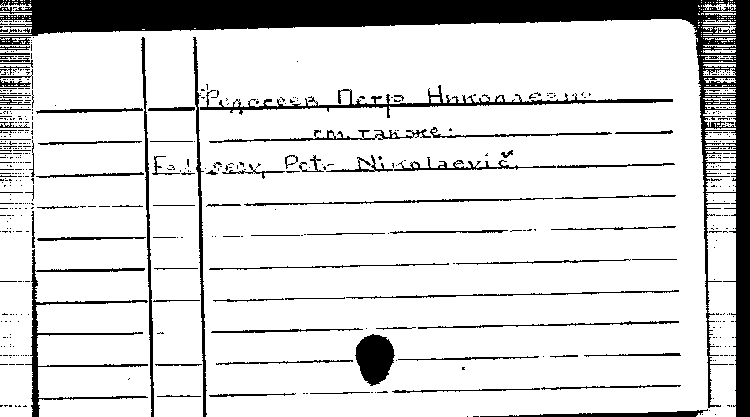 Федосеев, Петр Николаевич
см. также:
Fedoseev, Petr Nikolaevič.